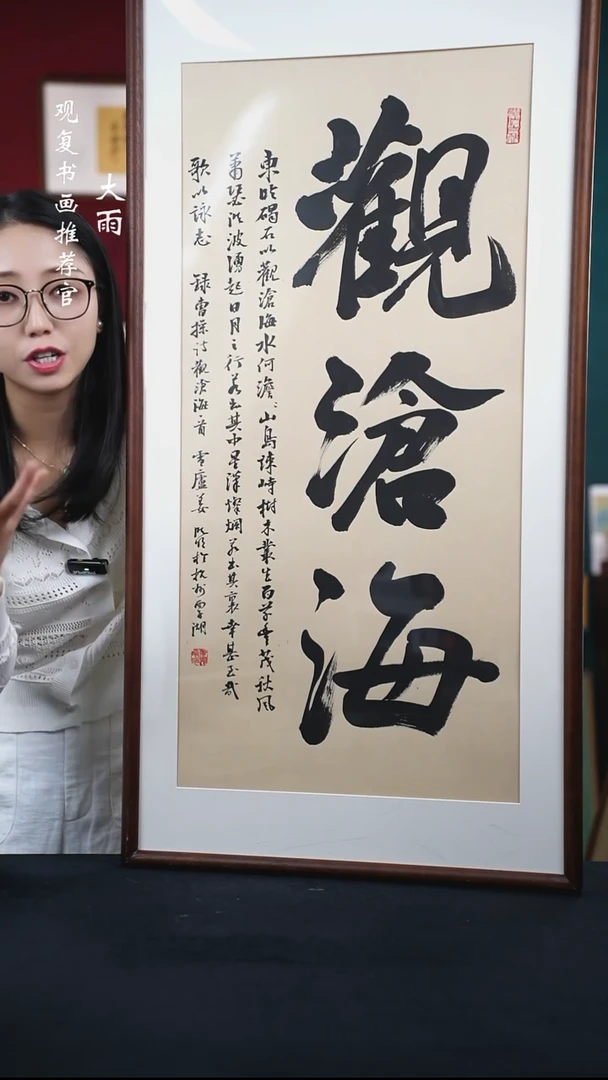 觀滄海
東臨碣石以觀滄海水何澹〻山島竦峙樹木叢生百草豐茂秋風
蕭瑟洪波湧起日月之行若出其中星漢燦爛若出其裏幸甚至哉
歌以詠志 録曹操詩觀滄海一首 廬姜 於杭州 湖
大雨
观复书画推荐官